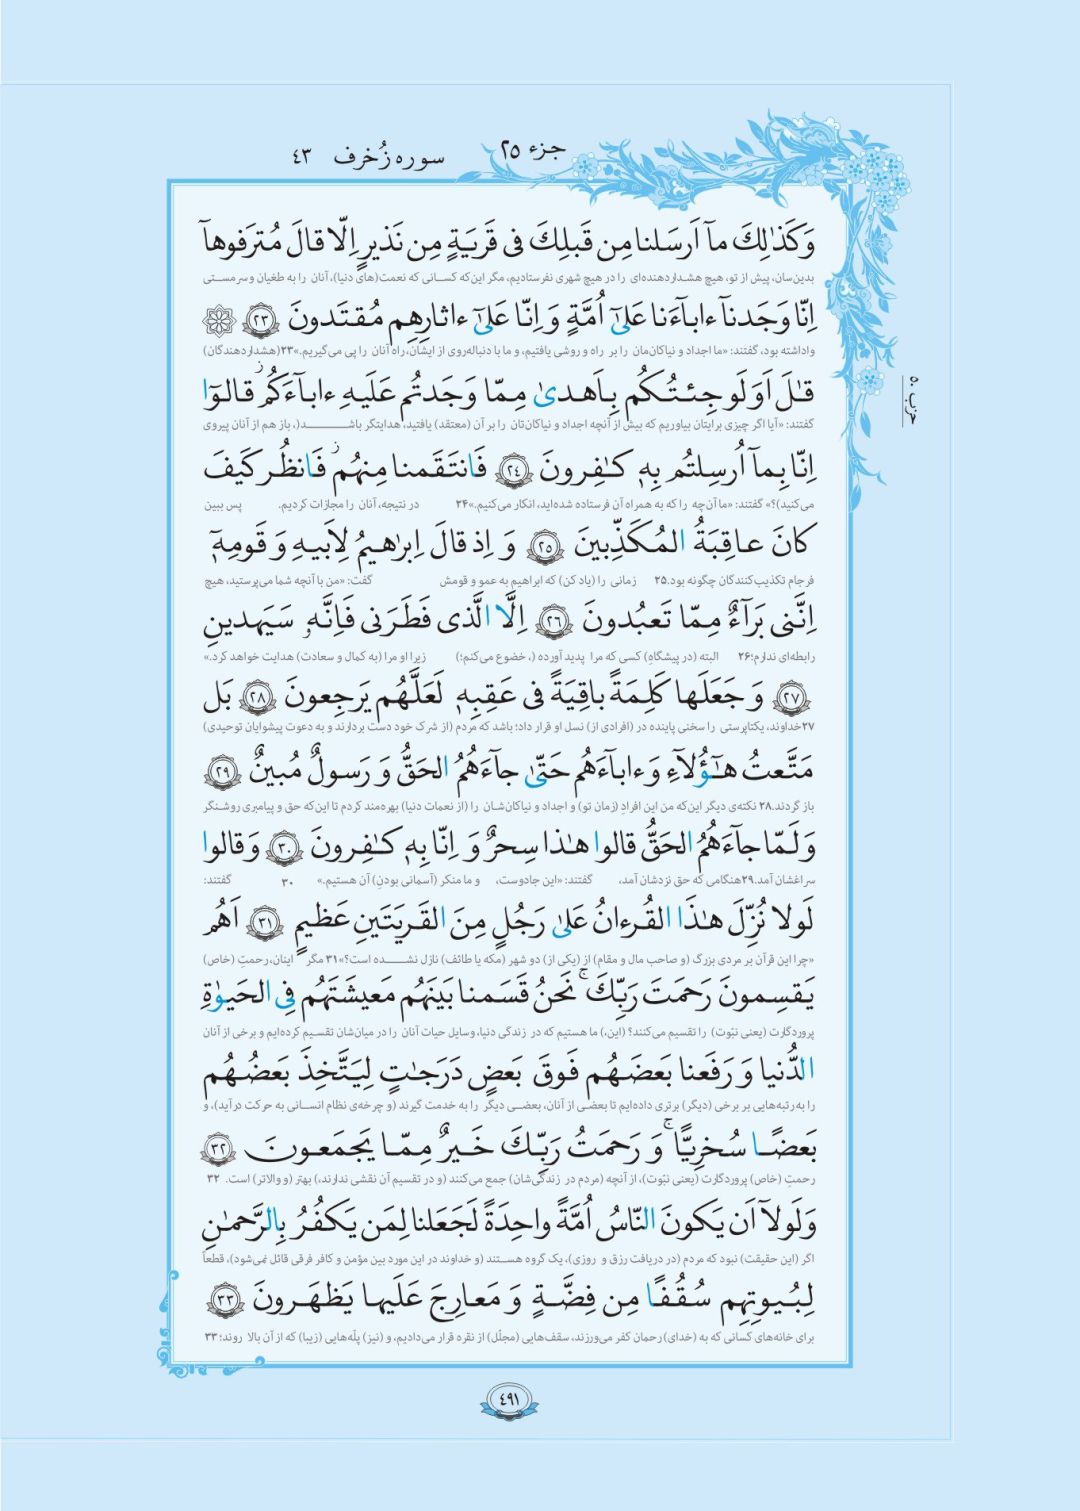 جزء ٢٥
سوره زُخرف ٤٣
وَكَذٰلِكَ مآ اَرسَلنا مِن قَبلِكَ فی قَريَةٍ مِن نَذيرٍ اِلّا قالَ مُترَفوهآ
بدین‌سان، پیش از تو، هیچ هشداردهنده‌ای را در هیچ شهری نفرستادیم، مگر این‌که کسانی که نعمت(های دنیا)، آنان را به طغیان و سرمستی
اِنّا وَجَدنآ ءابآءَنا عَلیٰٓ اُمَّةٍ وَ اِنّا عَلیٰٓ ءاثارِهِم مُقتَدونَ ٢٣
واداشته بود، گفتند: «ما اجداد و نیاکان‌مان را بر راه و روشی یافتیم، و ما با دنباله‌روی از ایشان، راه آنان را پی می‌گیریم.»۲۳(هشداردهندگان)
حزب ٥٠
قٰلَ اَوَلَو جِئتُكُم بِاَهدیٰ مِمّا وَجَدتُم عَلَيهِ ءابآءَكُم ز قالوٓا
گفتند: «آیا اگر چیزی برایتان بیاوریم که بیش از آنچه اجداد و نیاکان‌تان را بر آن (معتقد) یافتید، هدایتگر باشد(، باز هم از آنان پیروی
اِنّا بِمآ اُرسِلتُم بِهٖ كٰفِرونَ ٢٤ فَانتَقَمنا مِنهُم ز فَانظُر كَيفَ
می‌کنید)؟» گفتند: «ما آن‌چه را که به همراه آن فرستاده شده‌اید، انکار می‌کنیم.»۲۴ در نتیجه، آنان را مجازات کردیم. پس ببین
كانَ عاقِبَةُ المُكَذِّبينَ ٢٥ وَ اِذ قالَ اِبرٰهيمُ لِاَبيهِ وَ قَومِهٖٓ
فرجام تکذیب‌کنندگان چگونه بود.۲۵ زمانی را (یاد کن) که ابراهیم به عمو و قومش گفت: «من با آنچه شما می‌پرستید، هیچ
اِنَّنی بَرآءٌ مِمّا تَعبُدونَ ٢٦ اِلَّا الَّذی فَطَرَنی فَاِنَّهٗ سَيَهدينِ
رابطه‌ای ندارم؛۲۶ البته (در پیشگاهِ) کسی که مرا پدید آورده (، خضوع می‌کنم؛) زیرا او مرا (به کمال و سعادت) هدایت خواهد کرد.»
٢٧ وَ جَعَلَها كَلِمَةً باقِيَةً فی عَقِبِهٖ لَعَلَّهُم يَرجِعونَ ٢٨ بَل
۲۷خداوند، یکتاپرستی را سخنی پاینده در (افرادی از) نسل او قرار داد؛ باشد که مردم (از شرک خود دست بردارند و به دعوت پیشوایان توحیدی)
مَتَّعتُ هٰٓؤُلآءِ وَ ءابآءَهُم حَتّیٰ جآءَهُمُ الحَقُّ وَ رَسولٌ مُبينٌ ٢٩
باز گردند.۲۸ نکته‌ی دیگر این‌که من این افرادِ (زمان تو) و اجداد و نیاکان‌شان را (از نعمات دنیا) بهره‌مند کردم تا این‌که حق و پیامبری روشنگر
وَ لَمّا جآءَهُمُ الحَقُّ قالوا هٰذا سِحرٌ وَ اِنّا بِهٖ كٰفِرونَ ٣٠ وَ قالوا
سراغشان آمد.۲۹هنگامی که حق نزدشان آمد، گفتند: «این جادوست، و ما منکر (آسمانی بودنِ) آن هستیم.» ۳۰ گفتند:
لَولا نُزِّلَ هٰذَا القُرءانُ عَلیٰ رَجُلٍ مِنَ القَريَتَينِ عَظيمٍ ٣١ اَهُم
«چرا این قرآن بر مردی بزرگ (و صاحب مال و مقام) از (یکی از) دو شهر (مکه یا طائف) نازل نشده است؟»۳۱ مگر اینان، رحمتِ (خاص)
يَقسِمونَ رَحمَتَ رَبِّكَ ۚ نَحنُ قَسَمنا بَينَهُم مَعيشَتَهُم فِی الحَيوٰةِ
پروردگارت (یعنی نبوّت) را تقسیم می‌کنند؟ (این،) ما هستیم که در زندگی دنیا، وسایل حیات آنان را در میان‌شان تقسیم کرده‌ایم و برخی از آنان
الدُّنيا وَ رَفَعنا بَعضَهُم فَوقَ بَعضٍ دَرَجٰتٍ لِيَتَّخِذَ بَعضُهُم
را به رتبه‌هایی بر برخی (دیگر) برتری داده‌ایم تا بعضی از آنان، بعضی دیگر را به خدمت گیرند (و چرخه‌ی نظام انسانی به حرکت درآید)، و
بَعضًا سُخرِيًّا ۚ وَ رَحمَتُ رَبِّكَ خَيرٌ مِمّا يَجمَعونَ ٣٢
رحمتِ (خاص) پروردگارت (یعنی نبوّت)، از آنچه (مردم در زندگی‌شان) جمع می‌کنند (و در تقسیم آن نقشی ندارند،) بهتر (و والاتر) است. ۳۲
وَ لَولآ اَن يَكونَ النّاسُ اُمَّةً واحِدَةً لَجَعَلنا لِمَن يَكفُرُ بِالرَّحمٰنِ
اگر (این حقیقت) نبود که مردم (در دریافت رزق و روزی)، یک گروه هستند (و خداوند در این مورد بین مؤمن و کافر فرقی قائل نمی‌شود)، قطعاً
لِبُيوتِهِم سُقُفًا مِن فِضَّةٍ وَ مَعارِجَ عَلَيها يَظهَرونَ ٣٣
برای خانه‌های کسانی که به (خدای) رحمان کفر می‌ورزند، سقف‌هایی (مجلّل) از نقره قرار می‌دادیم، و (نیز) پلّه‌هایی (زیبا) که از آن بالا روند؛ ۳۳
٤٩١